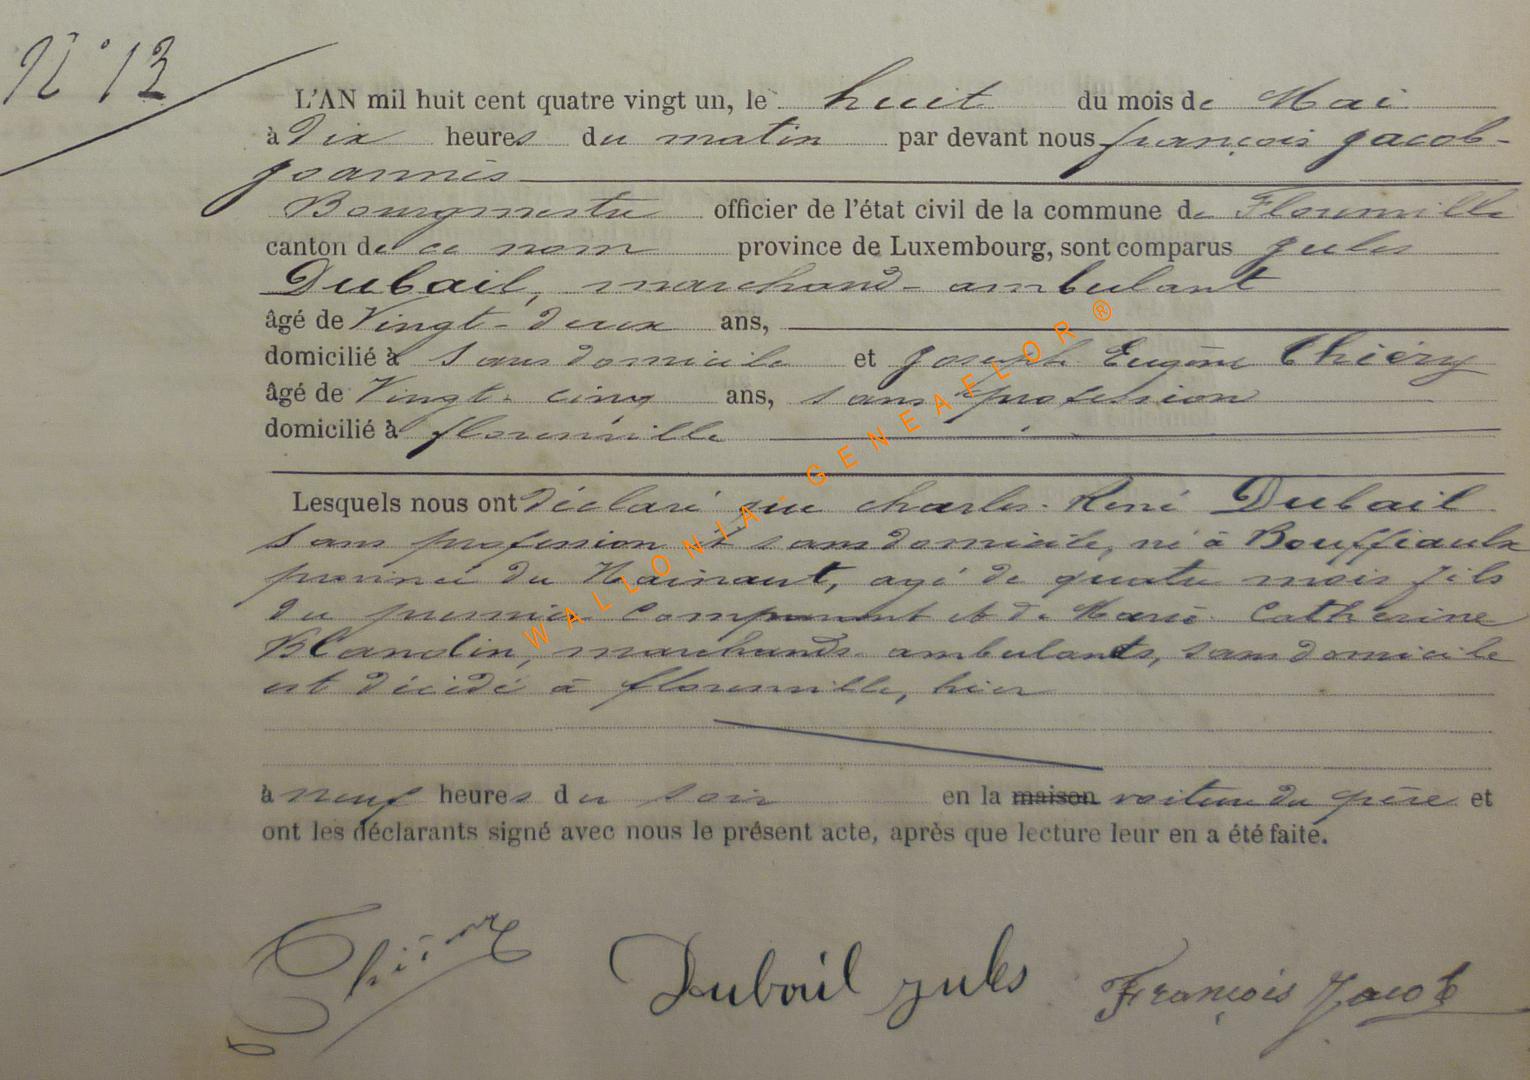 N° 13
L'AN mil huit cent quatre vingt un, le huit du mois de Mai
à Dix heures du matin par devant nous françois Jacob-
Joannès
Bourgmestre officier de l'état civil de la commune de Florenville
canton de ce nom province de Luxembourg, sont comparus Jules
Dubail, marchand-ambulant
âgé de Vingt-deux ans,
domicilié à sans domicile et Joseph Eugène Thiéry
âgé de Vingt-cinq ans, sans profession
domicilié à florenville
Lesquels nous ont déclaré que charles-René Dubail
sans profession et sans domicile, né à Bouffioulx
province du Hainaut, agé de quatre mois fils
du premier comparant et de Marie Catherine
Blandin, marchands-ambulants, sans domicile
est décédé à florenville, hier
à neuf heures du soir en la maison voiture du père et
ont les déclarants signé avec nous le présent acte, après que lecture leur en a été faite.
Thiéry Dubail jules François Jacob
WALLONIA-GENEAFLOR®